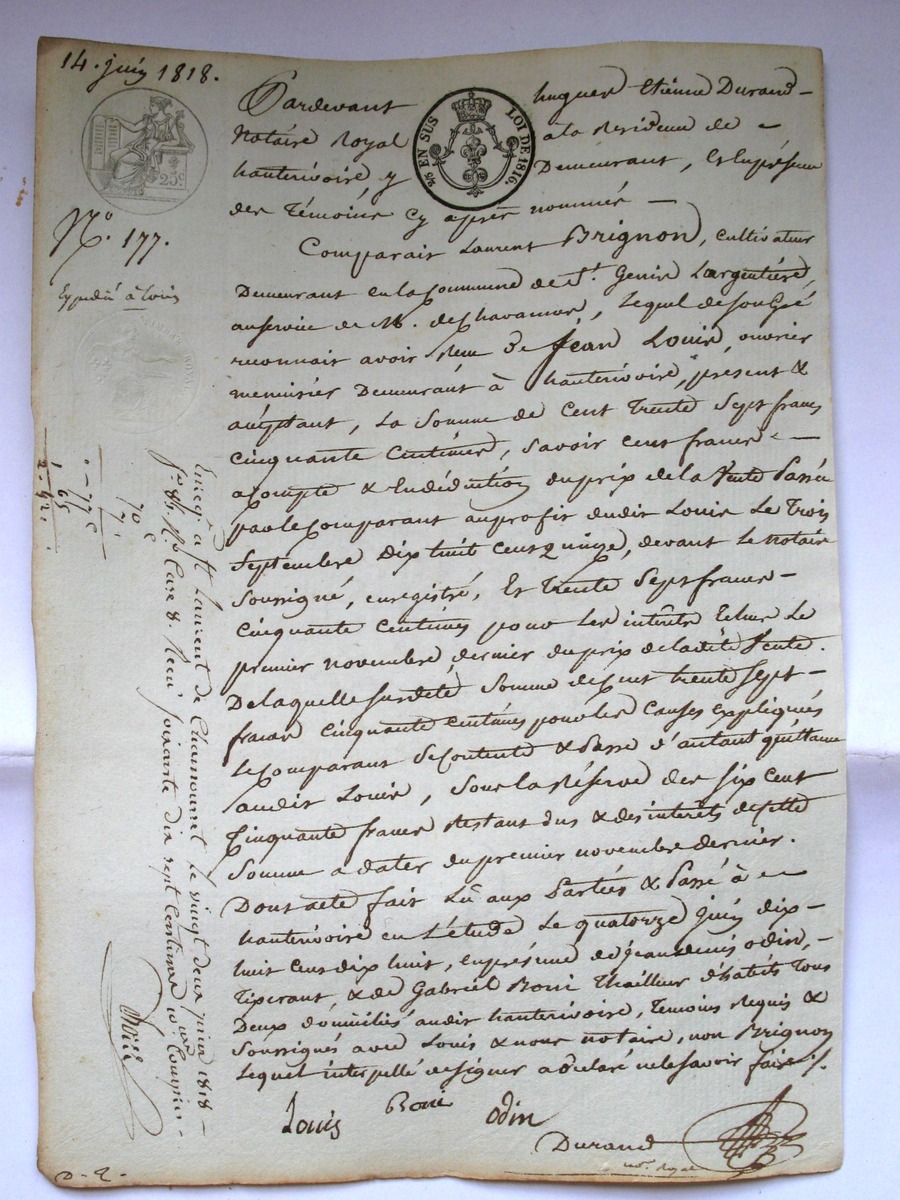 14. juin 1818.
25 c
¼ EN SUS LOI DE 1816.
Pardevant hugues Etiènne Durand -
Notaire Royal a la Residence de -
hauterivoire, y Demeurant, En la présence
des Témoins Cy après nommés -
N.o 177.
Comparait Laurent Brignon, cultivateur
Demeurant en la Commune de St. Genis L'argentière,
au service de M. de Chavannes, Lequel de Son Gré
Expédié à Louis
reconnait avoir Reçu de Jean Louis, ouvrier
menuisier Demeurant à hauterivoire, présent &
acceptant, La Somme de Cent Trente Sept francs
cinquante Centimes, Savoir cent francs -
acompte & En déduction du prix de la Vente Passée
par le Comparant au profit dudit Louis Le Trois
Septembre Dix huit Cent quinze, devant le notaire
Soussigné, enregistré, Et Trente Sept francs -
Cinquante Centimes pour Les intérêts Echus Le
premier novembre dernier du prix de ladite Vente.
De laquelle Susdite Somme de Cent trente Sept -
francs Cinquante Centimes pour les Causes expliquées
Le Comparant Se Contente & Passe d'autant quittance
audit Louis, Sous la Réserve des Six Cent
Cinquante francs Restant dus & des interêts de cette
Somme a dater du premier novembre dernier.
Dont acte fait Lû aux Parties & Passé à -
hauterivoire en L'étude Le quatorze juin dix -
huit Cent dix huit, en présence de jean denis odin, -
Tixerant, & de Gabriel Boni Thailleur d'habits Tous
Deux domiciliés audit hauterivoire, Temoins Requis &
Soussignés avec Louis & nous notaire, non Brignon
Lequel interpellé de signer a déclaré ne le Savoir faire ./.
Louis Boni odin
Durand
not.e royal
70
7
c
0 - 77 c
65
1.
2. 42.
Enreg. a St Laurent de Chamousset le vingt deux juin 1818 -
f.o 86 R.o Case 8. Reçu soixante dix sept Centimes
D - 2 -